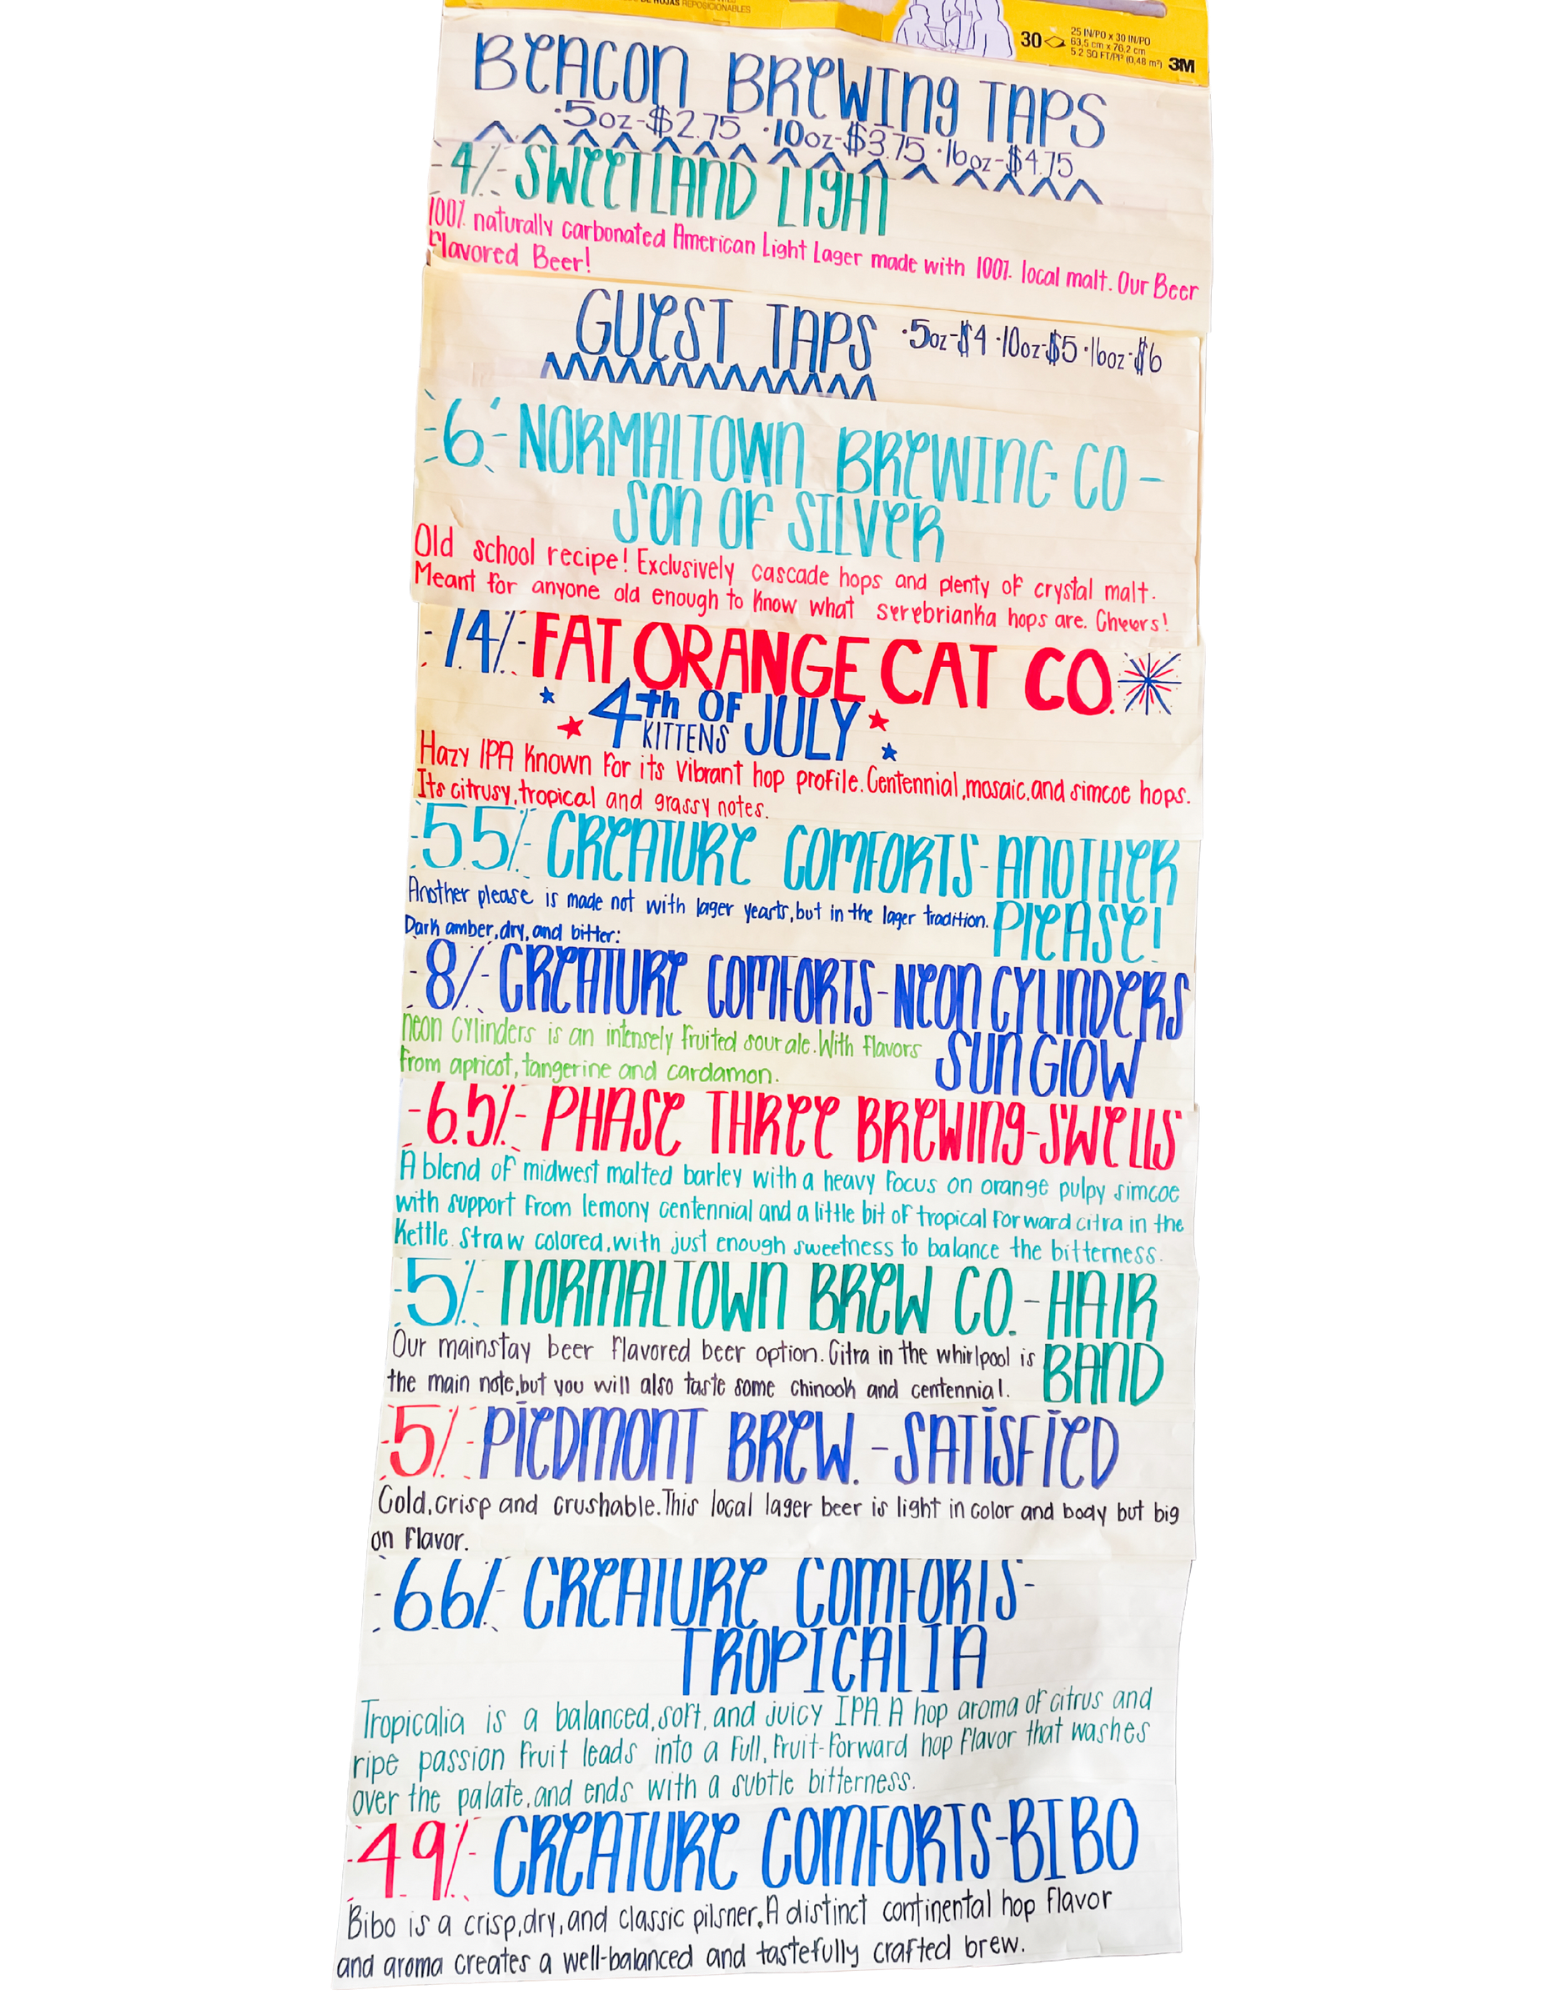 DE HOJAS REPOSICIONABLES
30
25 IN/PO x 30 IN/PO
63,5 cm x 76,2 cm
5.2 SQ FT/PI² (0,48 m²)
3M
BEACON BREWING TAPS
·5oz-$2.75 ·10oz-$3.75 ·16oz-$4.75
4% SWEETLAND LIGHT
100% naturally carbonated American Light Lager made with 100% local malt. Our Beer
Flavored Beer!
GUEST TAPS ·5oz-$4 ·10oz-$5 ·16oz-$6
6 NORMALTOWN BREWING CO -
SON OF SILVER
Old school recipe! Exclusively cascade hops and plenty of crystal malt.
Meant for anyone old enough to know what serebrianka hops are. Cheers!
7.4% FAT ORANGE CAT CO.
4th OF JULY
KITTENS
Hazy IPA known for its vibrant hop profile. Centennial, mosaic, and simcoe hops.
Its citrusy, tropical and grassy notes.
5.5% CREATURE COMFORTS-ANOTHER
PLEASE!
Another please is made not with lager yearts, but in the lager tradition.
Dark amber, dry, and bitter:
8% CREATURE COMFORTS-NEON CYLINDERS
SUN GLOW
neon cylinders is an intensely fruited sour ale. With flavors
from apricot, tangerine and cardamon.
6.5% PHASE THREE BREWING-SWELLS
A blend of midwest malted barley with a heavy focus on orange pulpy simcoe
with support from lemony centennial and a little bit of tropical forward citra in the
kettle. Straw colored, with just enough sweetness to balance the bitterness.
5% NORMALTOWN BREW CO. - HAIR
BAND
Our mainstay beer flavored beer option. Citra in the whirlpool is
the main note, but you will also taste some chinook and centennial.
5% PIEDMONT BREW. - SATISFIED
Cold, crisp and crushable. This local lager beer is light in color and body but big
on flavor.
6.6% CREATURE COMFORTS-
TROPICALIA
Tropicalia is a balanced, soft, and juicy IPA. A hop aroma of citrus and
ripe passion fruit leads into a full, fruit-forward hop flavor that washes
over the palate, and ends with a subtle bitterness.
4.9% CREATURE COMFORTS-BIBO
Bibo is a crisp, dry, and classic pilsner. A distinct continental hop flavor
and aroma creates a well-balanced and tastefully crafted brew.